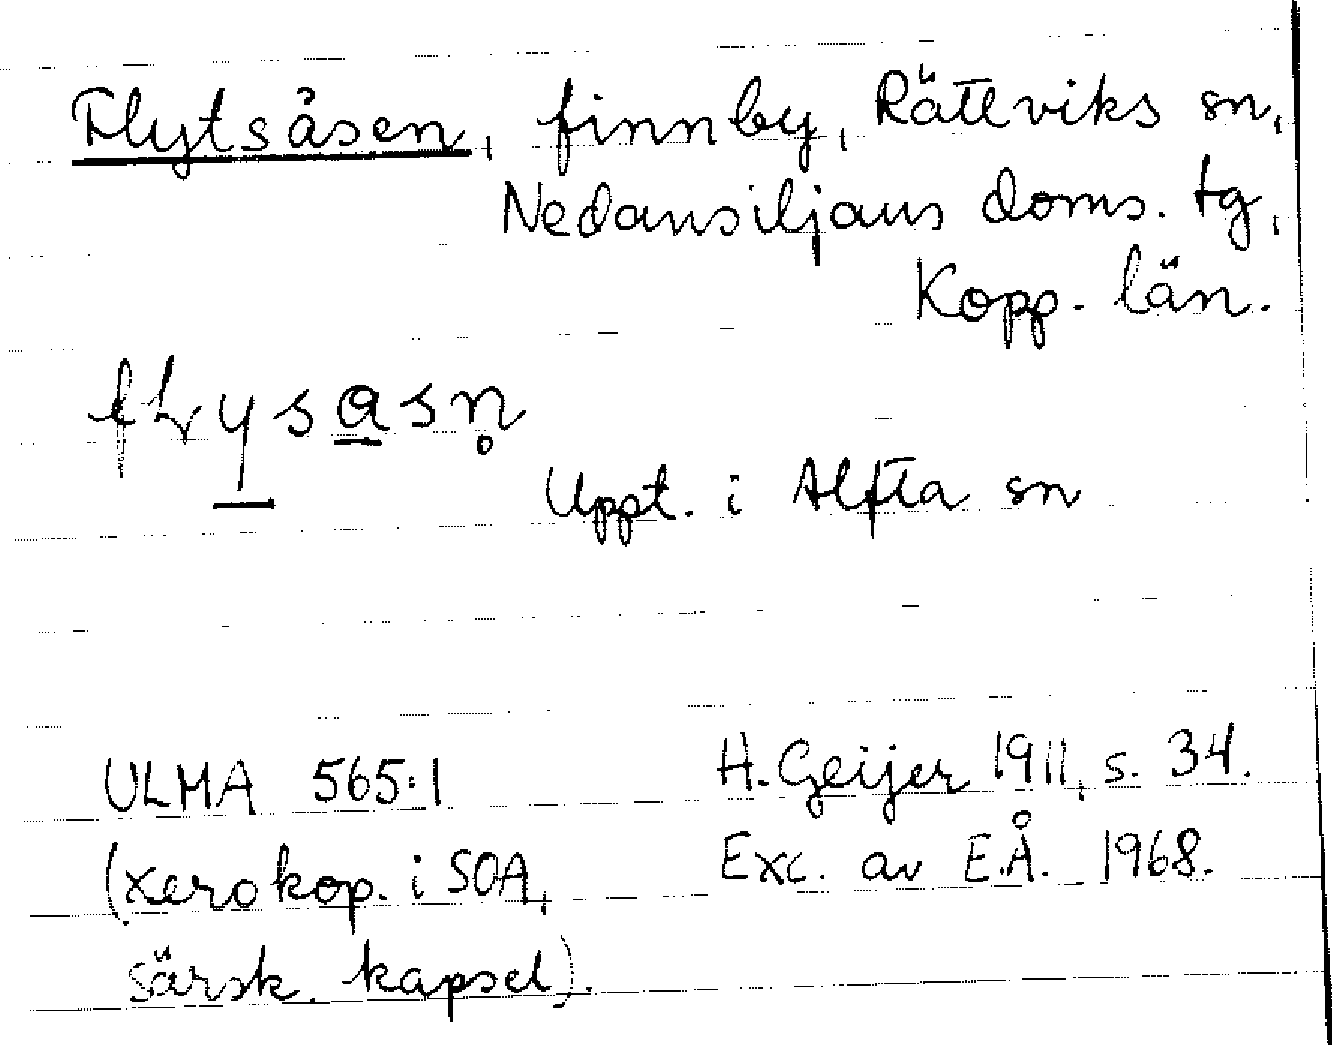 Flytsåsen, finnby, Rättviks sn,
Nedansiljans doms. tg,
Kopp. län.
fLysasn̥
Uppt. i Alfta sn
ULMA 565:1 H. Geijer 1911, s. 34.
(xerokop. i SOA, Exc. av E.Å. 1968.
särsk. kapsel).